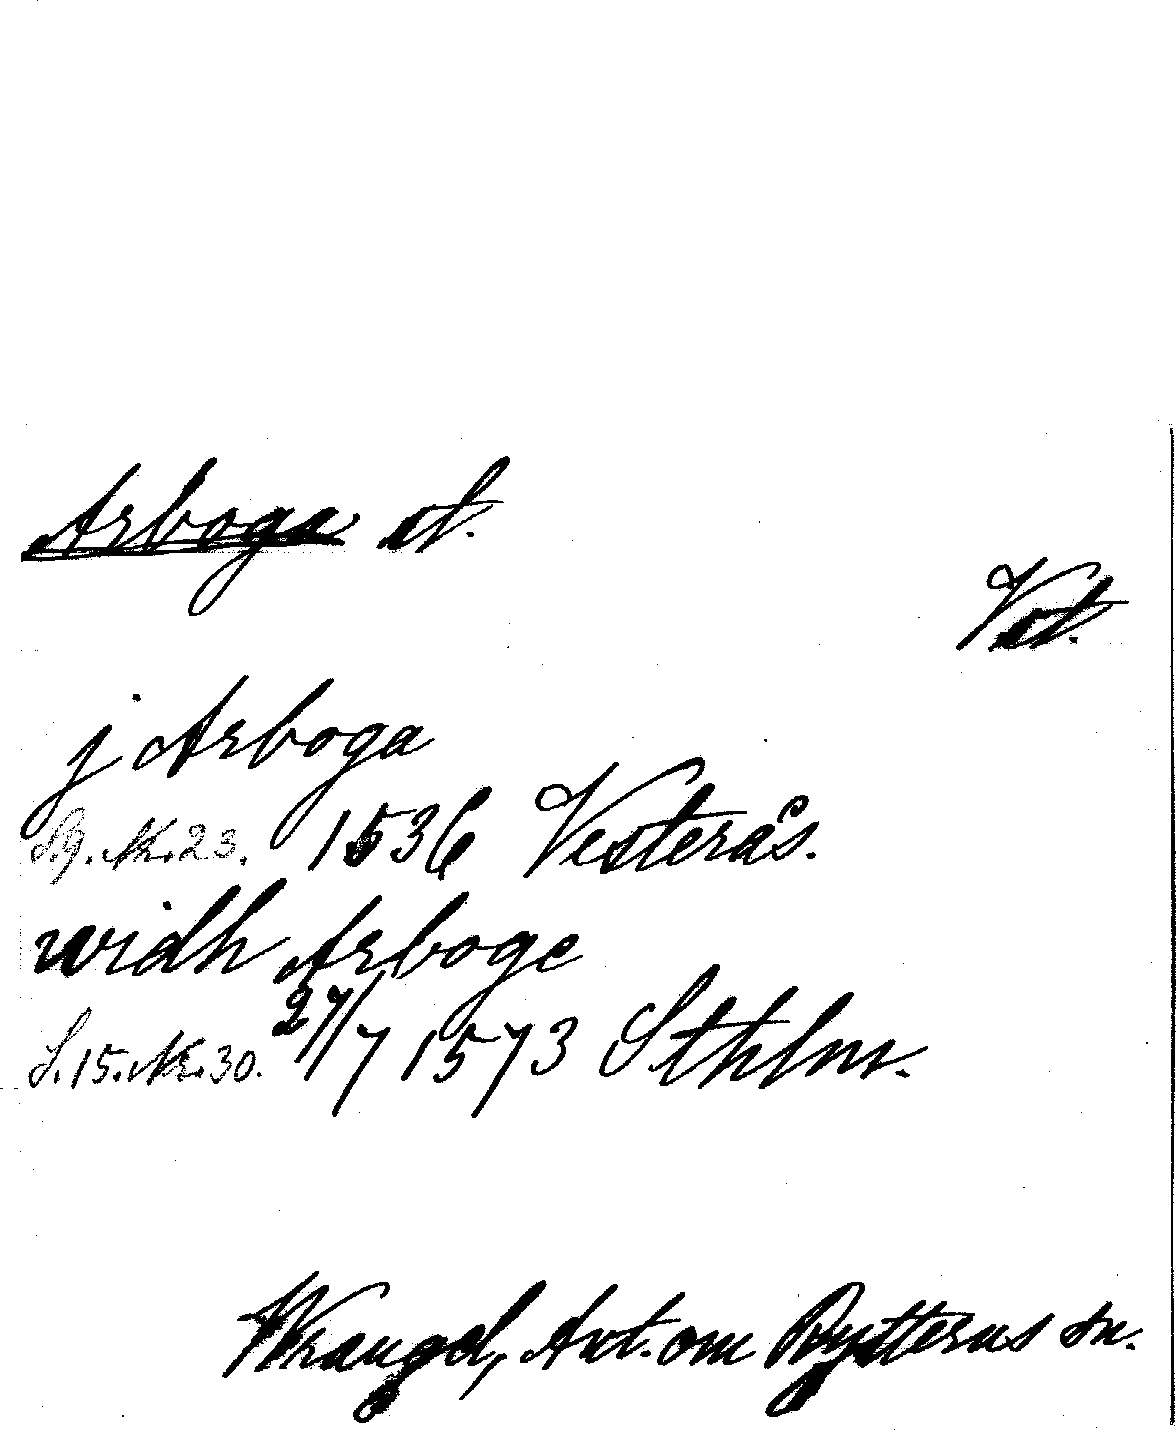 Arboga st.
Vst.
j Arboga
S.9. Nr. 23. 1536 Vesterås.
widh Arboge
S. 15. Nr. 30. 27/7 1573 Sthlm.
Wrangel, Ant. om Rytterns sn.